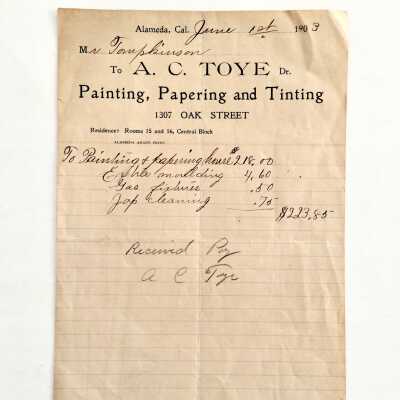 Alameda, Cal. June 1st 1903
Mr Tompkinson
To A. C. TOYE Dr.
Painting, Papering and Tinting
1307 OAK STREET
Residence: Rooms 15 and 16, Central Block
ALAMEDA ARGUS PRINT
To Painting & papering house $218.00
Extra moulding 4.60
Gas fixtures .50
Jap cleaning .75
$223.85
Received Pay
A C Toye